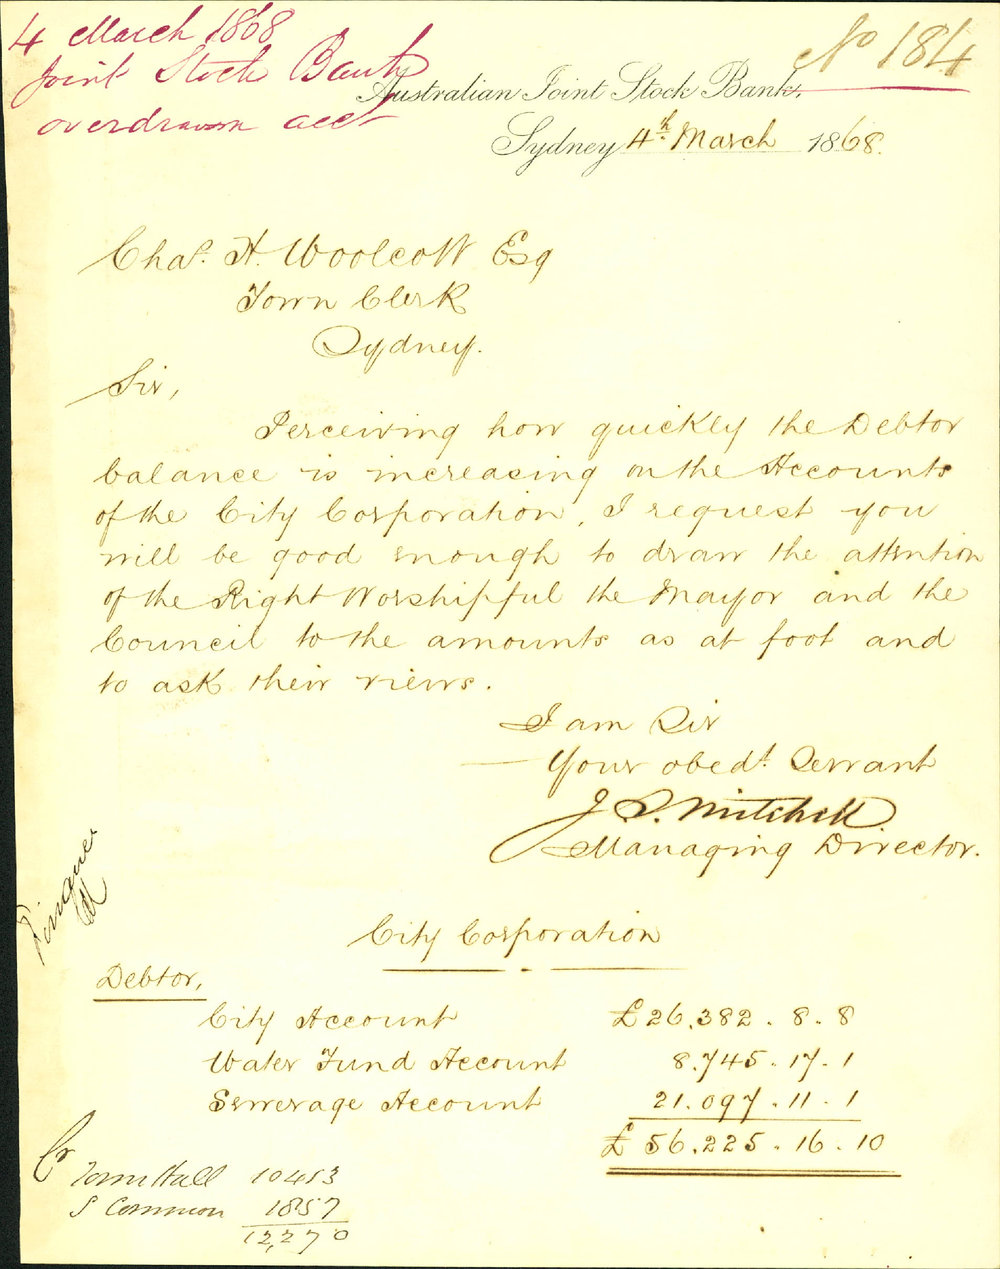 4 March 1868
Joint Stock Bank
overdrawn acct
No 184
Australian Joint Stock Bank,
Sydney 4th March 1868.
Chas. H. Woolcott Esq
Town Clerk
Sydney.
Sir,
Perceiving how quickly the Debtor
balance is increasing on the Accounts
of the City Corporation, I request you
will be good enough to draw the attention
of the Right Worshipful the Mayor and the
Council to the amounts as at foot and
to ask their views.
I am Sir
Your obedt. Servant
J. S. Mitchell
Managing Director.
Finance
City Corporation
Debtor,
City Account £26,382 . 8 . 8
Water Fund Account 8.745 . 17 . 1
Sewerage Account 21.097 . 11 . 1
£ 56.225 . 16 . 10
Cr
Town Hall 10413
S Common 1857
12,270